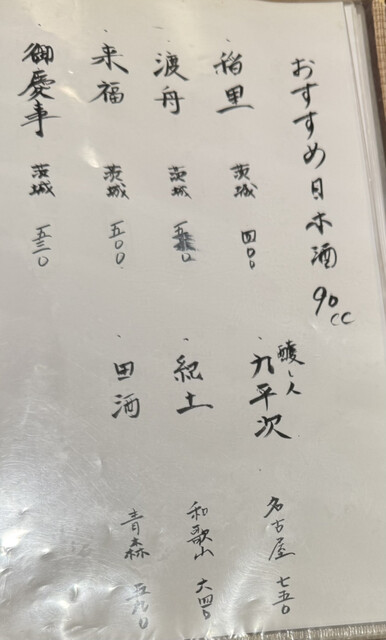 おすすめ日本酒 90cc
稲里 茨城 四〇〇
渡舟 茨城
来福 茨城 五〇〇
御慶事 茨城 五三〇
醸し人
九平次 名古屋 七五〇
紀土 和歌山 六四〇
田酒 青森